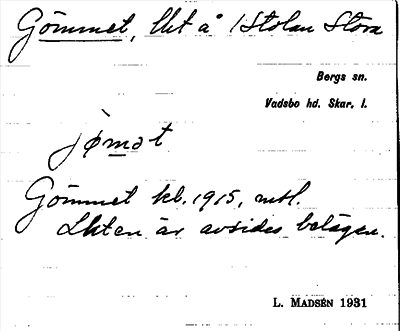 Gömmet, lht å 1 Stolan Stora
Bergs sn.
Vadsbo hd. Skar. l.
jømət
Gömmet kl. 1915, mtl.
Lhten är avsides belägen.
L. Madsén 1931